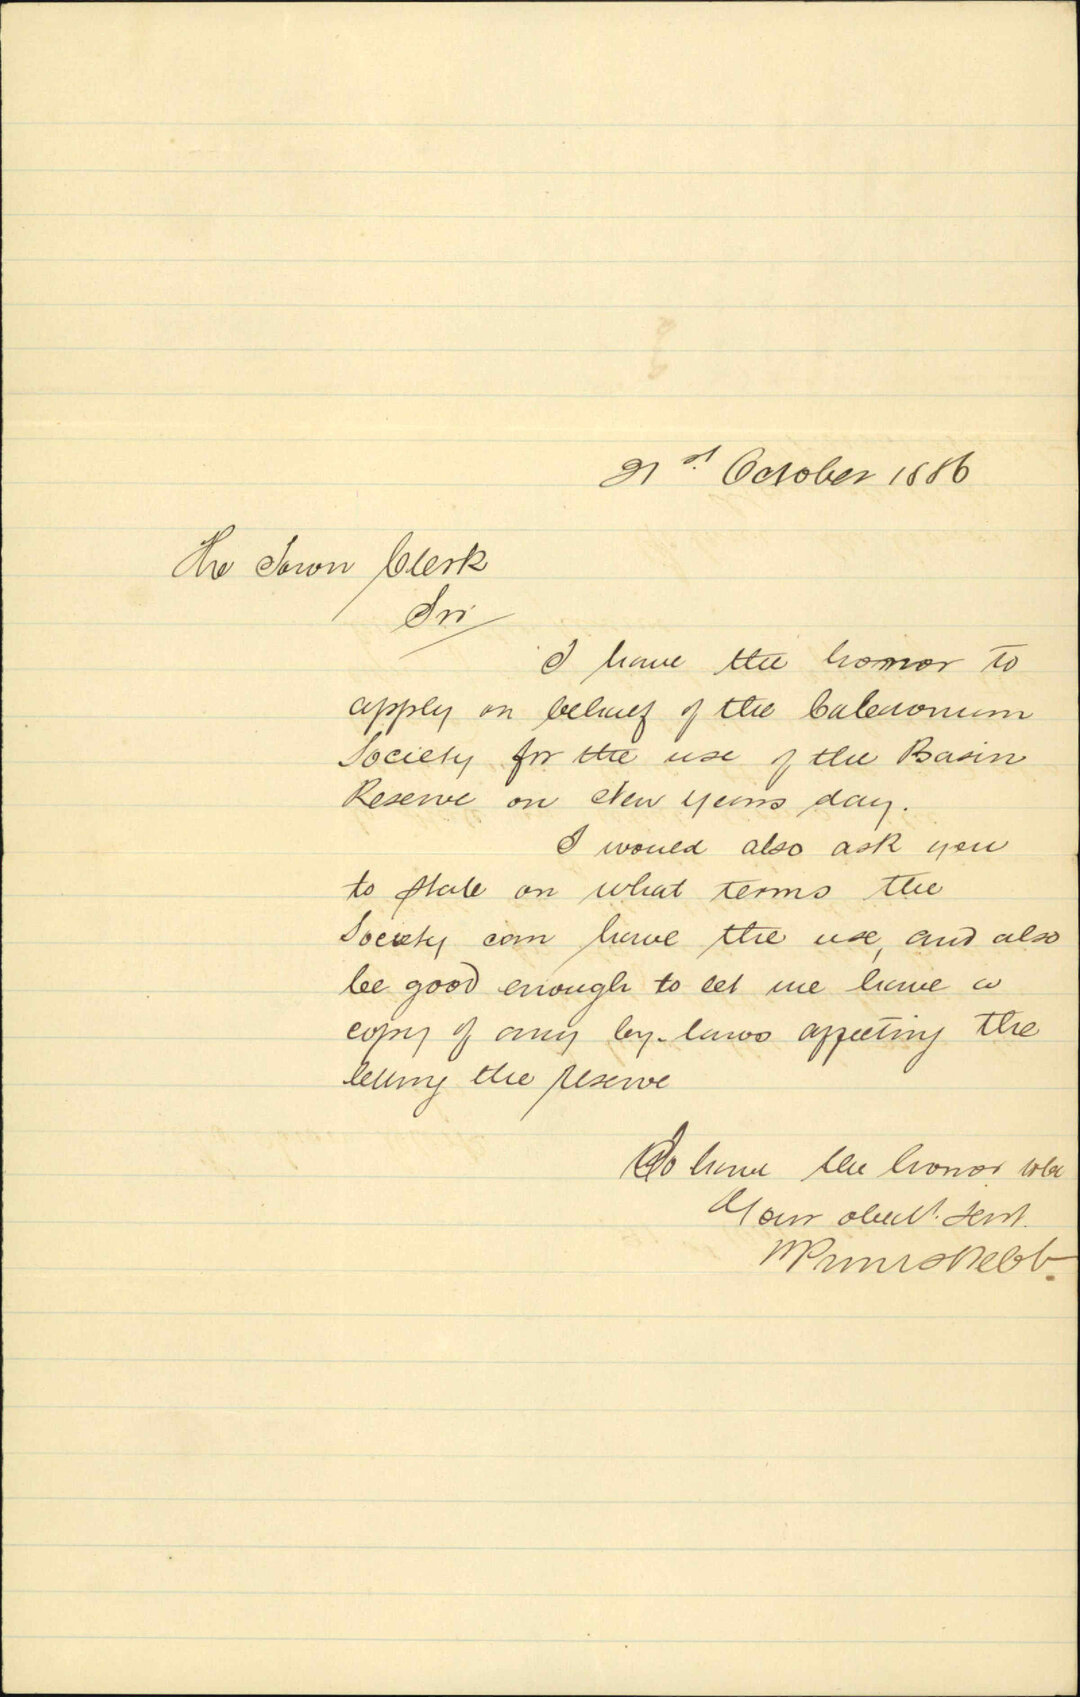 21st October 1886
The Town Clerk
Sir
I have the honor to
apply on behalf of the Caledonian
Society for the use of the Basin
Reserve on New Years day.
I would also ask you
to state on what terms the
Society can have the use, and also
be good enough to let me have a
copy of any by-laws affecting the
letting the reserve
I have the honor to be
Your obedt. Servt.